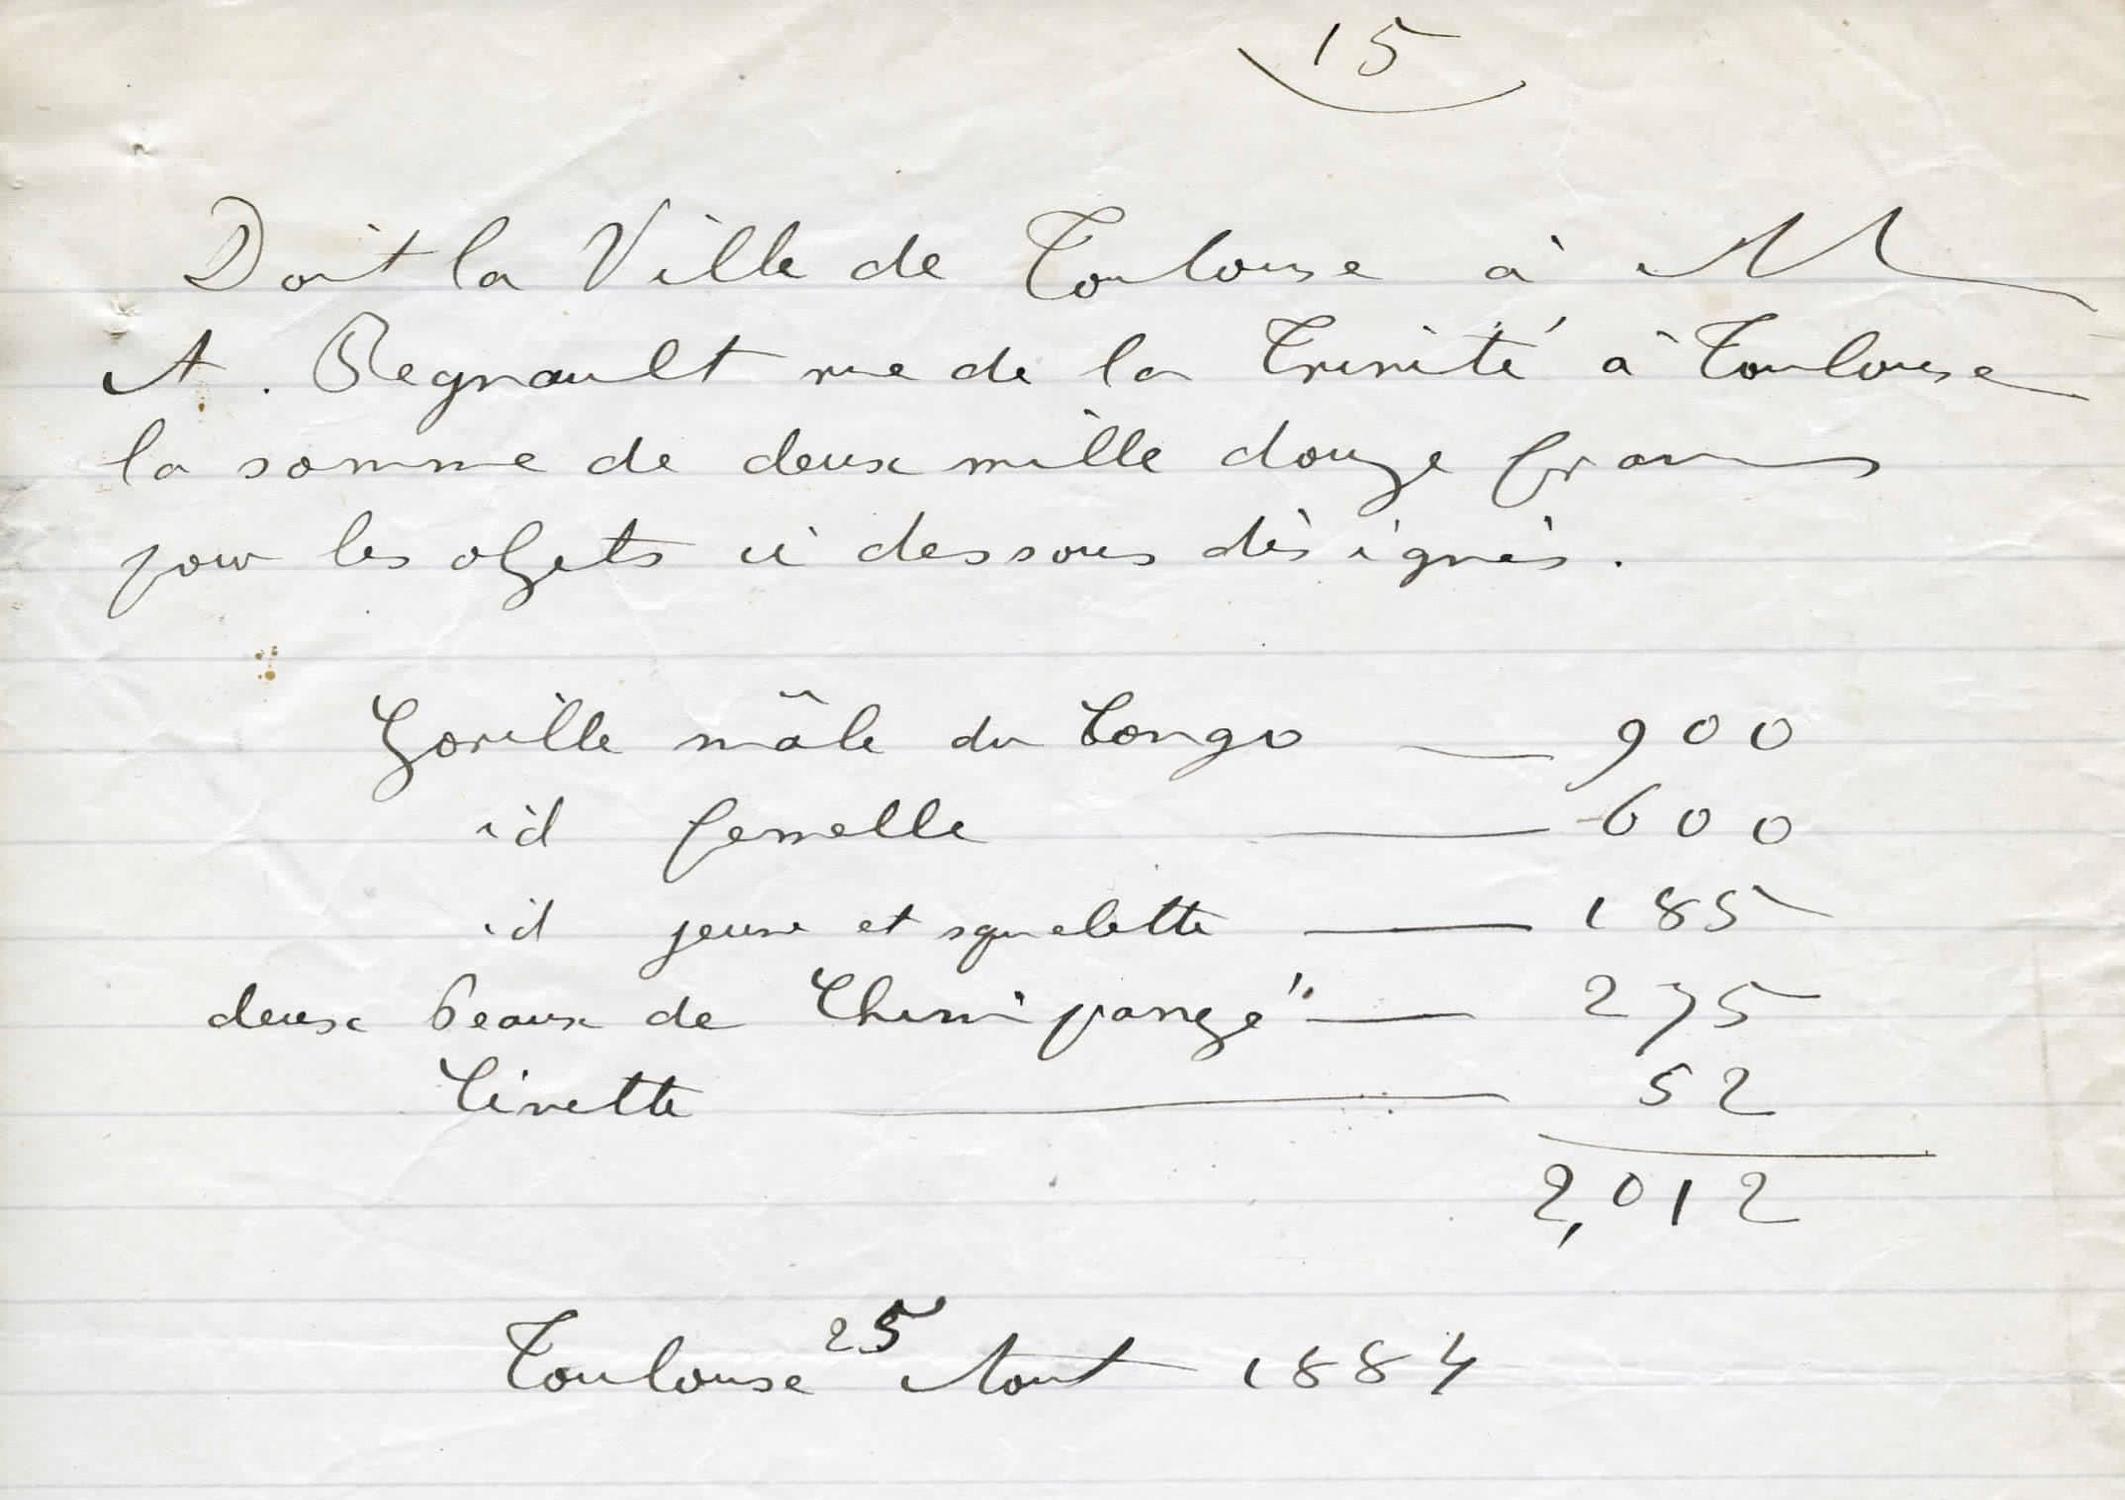 15
Doit la Ville de Toulouse à M
A. Regnault rue de la Trinité à Toulouse
la somme de deux mille douze francs
pour les objets ci dessous désignés.
Gorille mâle du Congo — 900
id femelle — 600
id jeune et squelette — 185
deux beaux de Chimipanzé" — 275
Civette — 52
2,012
Toulouse 25 Aout 1884